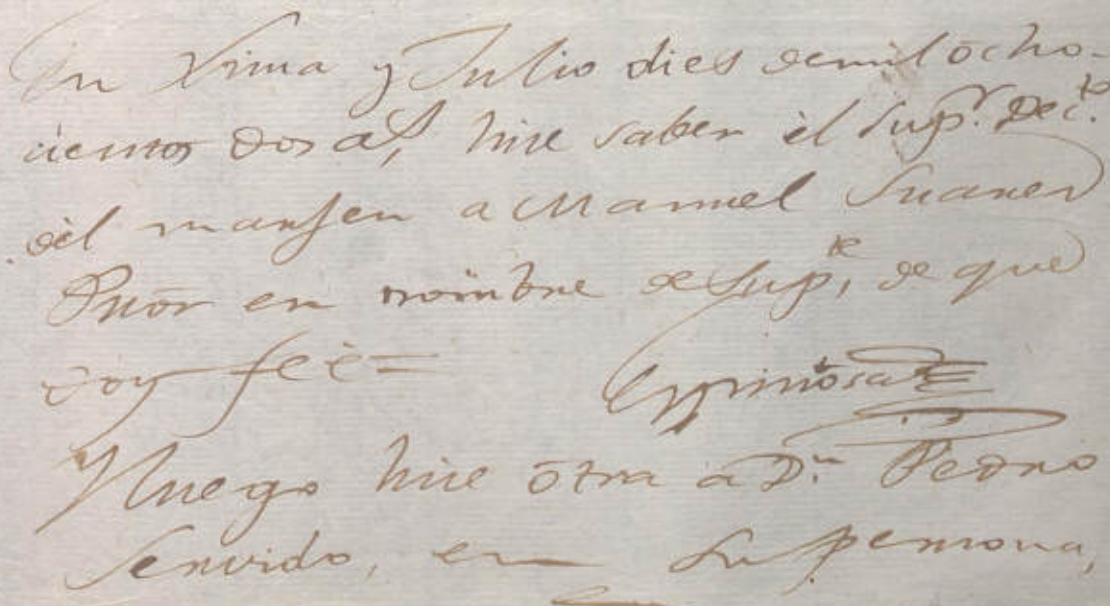 En Lima y Julio dies de mil ocho-
cientos dos a.s, hice saber el Sup.r Dec.to
del margen a Manuel Suares
Pror en nombre de su p.te, de que
doy feè=
Espinosa
Y luego hice otra a D.n Pedro
Servido, en su persona,